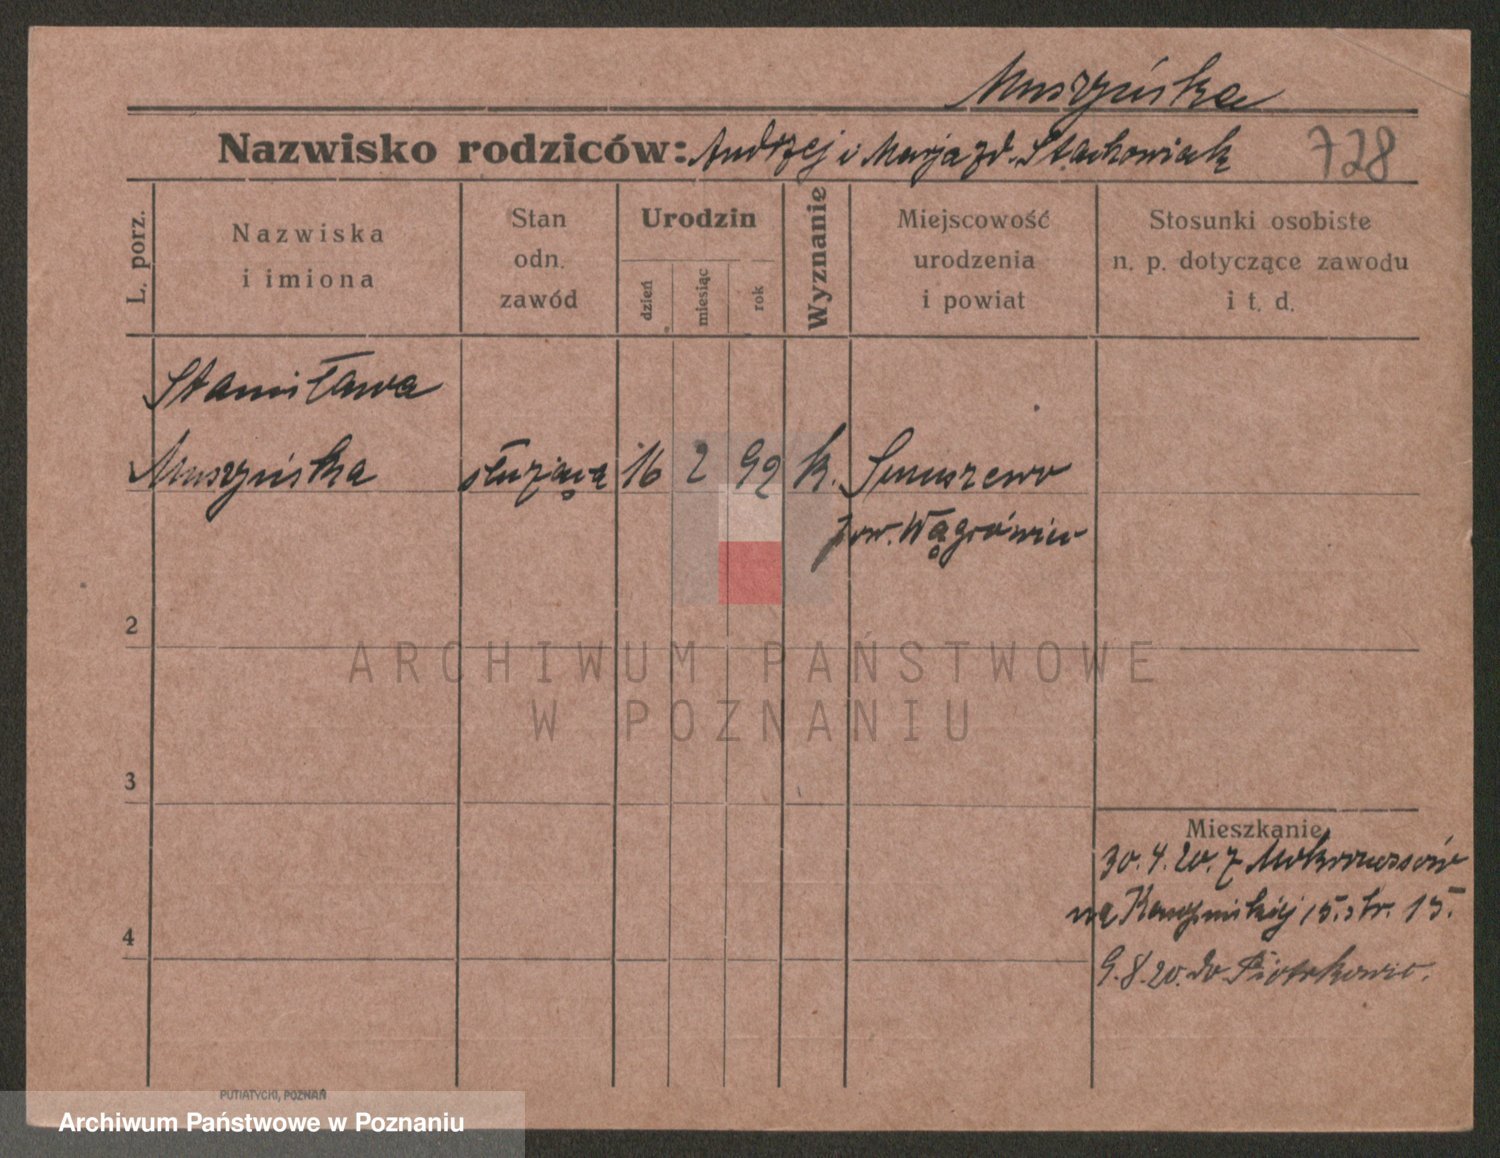 Muszyńska
Nazwisko rodziców: Andrzej i Marja zd. Stachowiak 728
L. porz.
Nazwiska
i imiona
Stan
odn.
zawód
Urodzin
dzień
miesiąc
rok
Wyznanie
Miejscowość
urodzenia
i powiat
Stosunki osobiste
n. p. dotyczące zawodu
i t. d.
Stanisława
Muszyńska służąca 16 2 92 k.
pow. Wągrówiec
2
ARCHIWUM PAŃSTWOWE
W POZNANIU
3
Mieszkanie
30.4.20. z
na 15. str. 15.
4
9.8.20. do Piotrkowic.
PUTIATYCKI, POZNAŃ
Archiwum Państwowe w Poznaniu